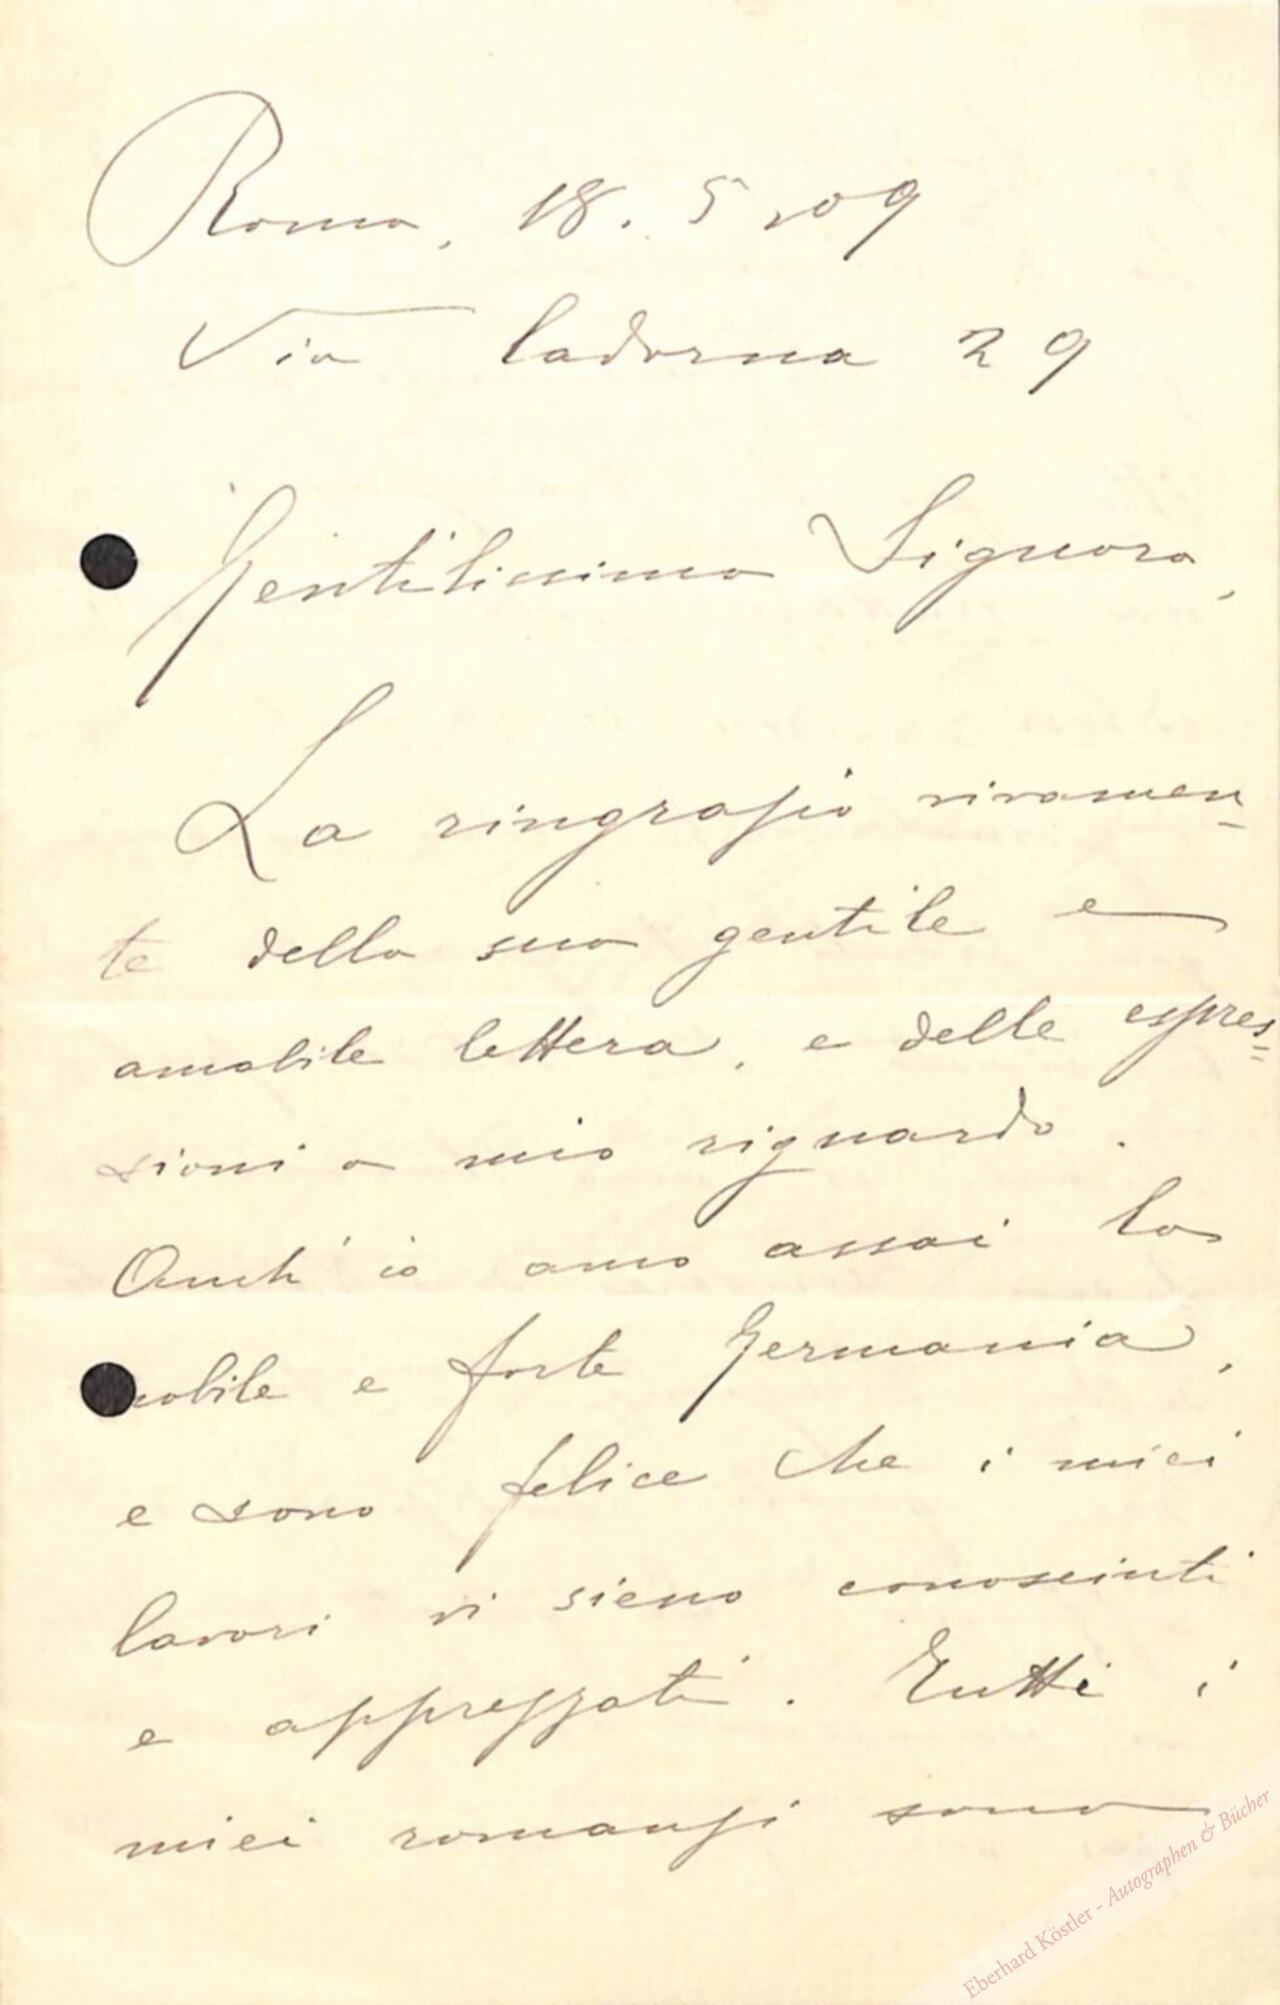 Roma, 18. 5 909
Via Cadorna 29
Gentilissima Signora,
La ringrazio vivamen-
te della sua gentile e
amabile lettera, e delle espres=
sioni a mio riguardo.
Anch'io amo assai la
nobile e forte Germania,
e sono felice che i miei
lavori vi sieno conosciuti
e apprezzati. Tutti i
miei romanzi sono
Eberhard Köstler - Autographen & Bücher